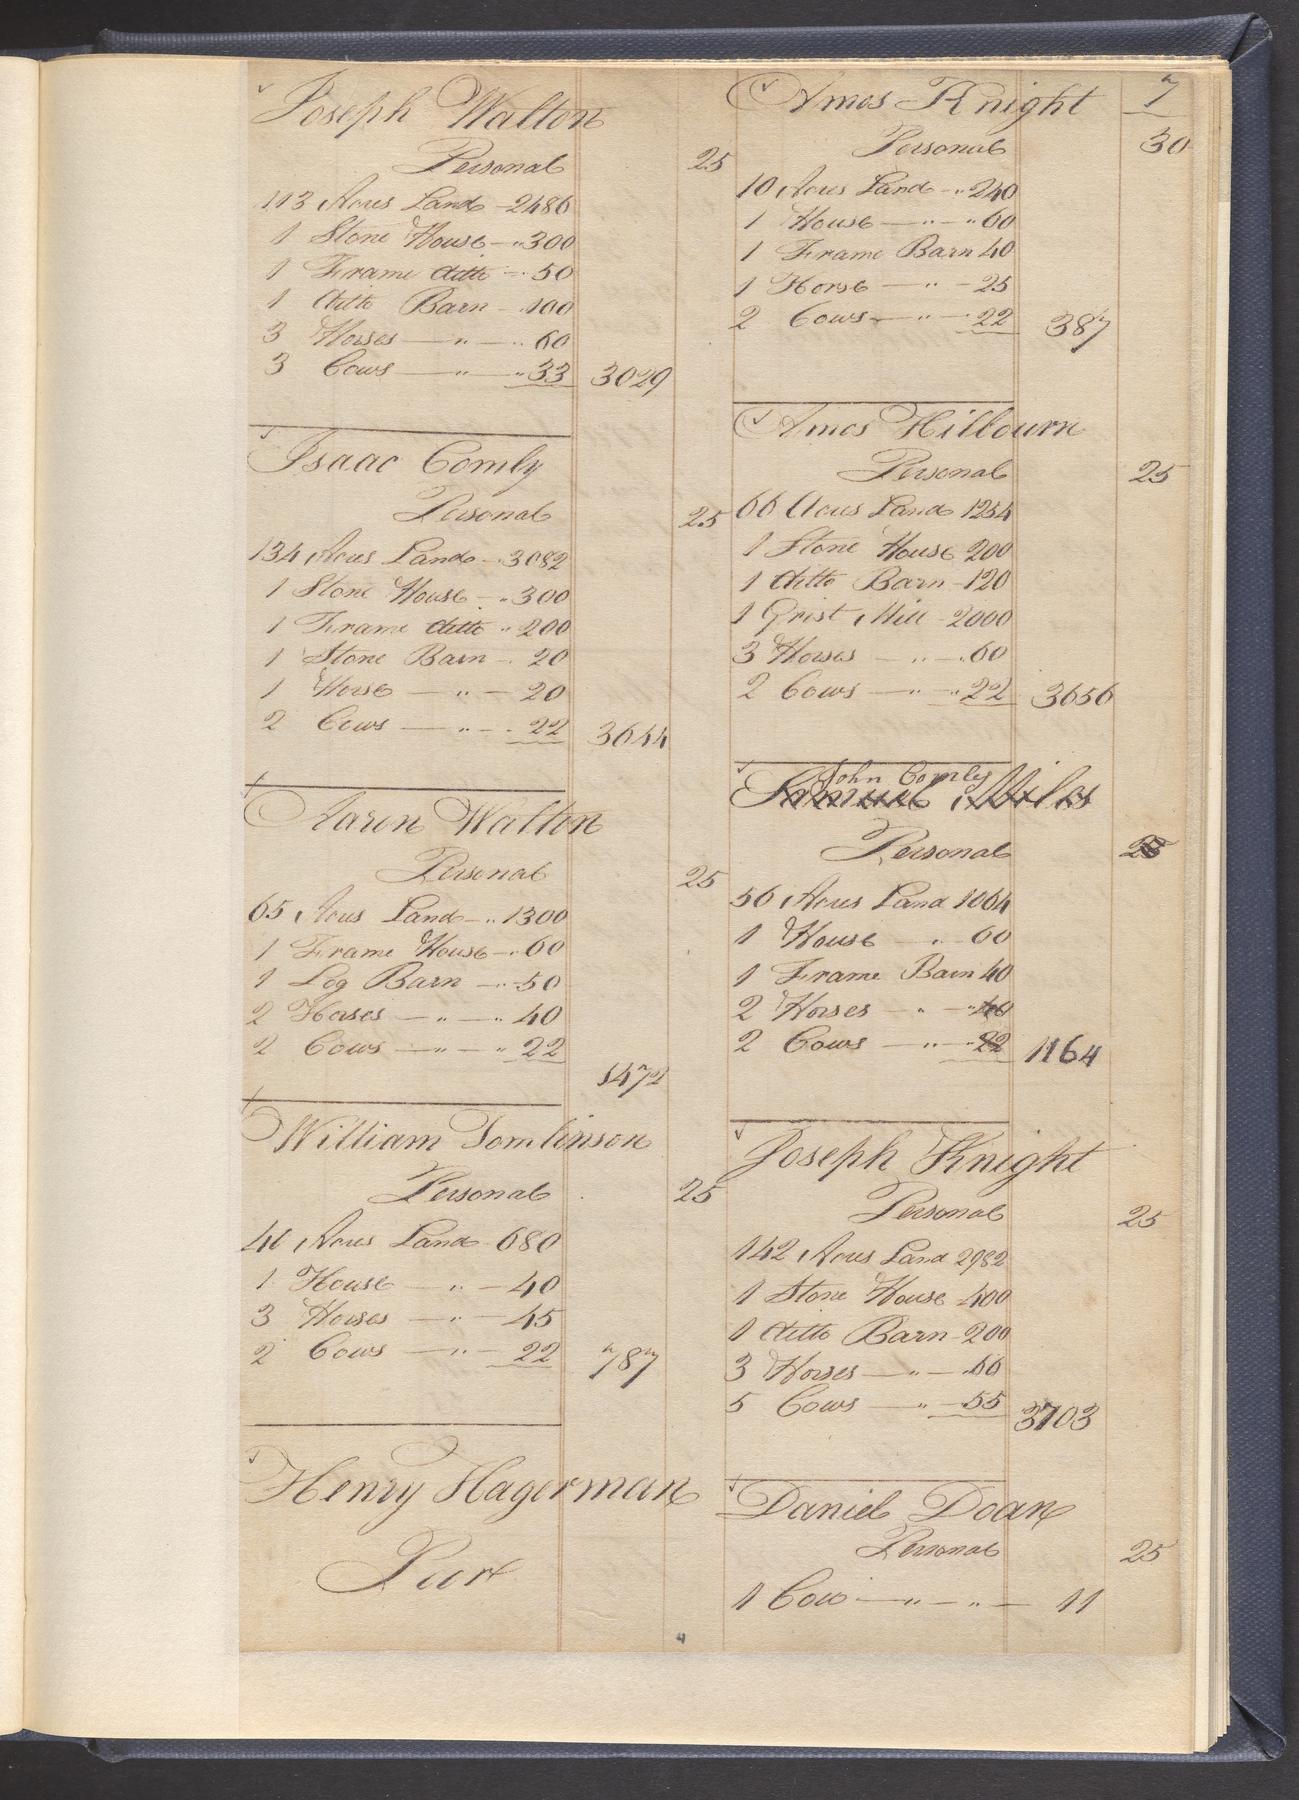 Joseph Walton
Personal 25
113 Acres Land 2486
1 Stone House " 300
1 Frame ditto " 50
1 ditto Barn " 100
3 Horses " " 60
3 Cows " " 33 3029
Isaac Comly
Personal 25
134 Acres Land " 3082
1 Stone House " 300
1 Frame ditto " 200
1 Stone Barn " 20
1 Horse " 20
2 Cows " " 22 3644
Aaron Walton
Personal 25
65 Acres Land " 1300
1 Frame House " 60
1 Log Barn " 50
2 Horses " " 40
2 Cows " " 22
1472
William Tomlinson
Personal 25
40 Acres Land 680
1 House " 40
3 Horses " 45
2 Cows " 22 787
Henry Hagerman
4
7
Amos Knight
Personal 30
10 Acres Land " 240
1 House " " 60
1 Frame Barn 40
1 Horse " 25
2 Cows " 22 387
Amos Hilbourn
Personal 25
66 Acres Land 1254
1 Stone House 200
1 ditto Barn 120
1 Grist Mill 2000
3 Horses " " 60
2 Cows " " 22 3656
John Comly
Samuel Miles
Personal 25
56 Acres Land 1064
1 House " 60
1 Frame Barn 40
2 Horses " " 40
2 Cows " " 22 1164
Joseph Knight
Personal 25
142 Acres Land 2982
1 Stone House 400
1 ditto Barn 200
3 Horses " 66
5 Cows " 55 3703
Daniel Doan
Personal 25
1 Cow " " 11